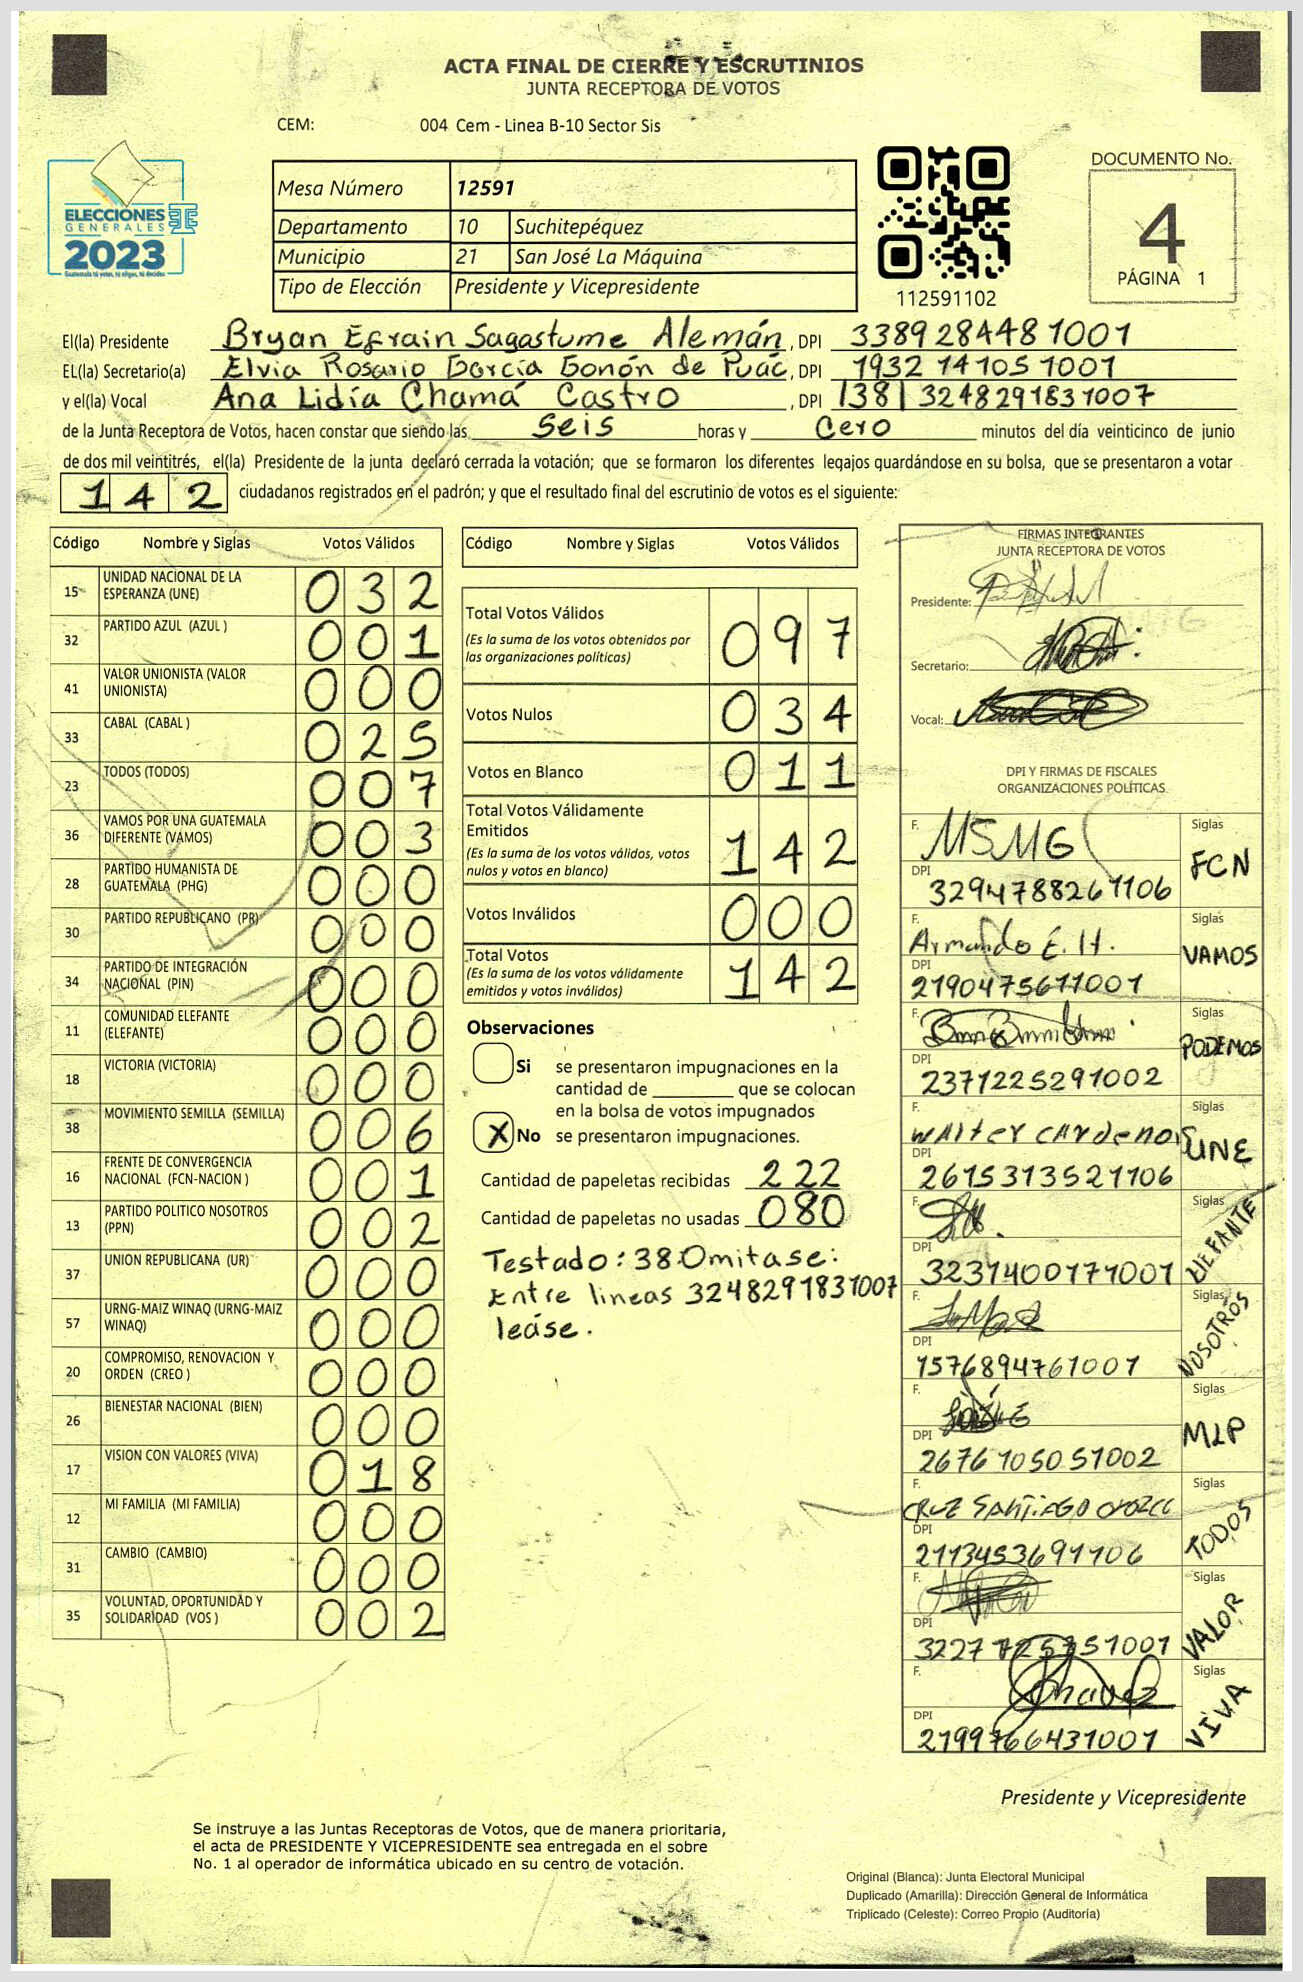 ACTA FINAL DE CIERRE Y ESCRUTINIOS
JUNTA RECEPTORA DE VOTOS
CEM: 004 Cem - Linea B-10 Sector Sis
ELECCIONES
GENERALES
2023
Guatemala tú votas, tú eliges, tú decides
Mesa Número 12591
Departamento 10 Suchitepéquez
Municipio 21 San José La Máquina
Tipo de Elección Presidente y Vicepresidente
112591102
DOCUMENTO No.
4
PÁGINA 1
El(la) Presidente Bryan Efrain Sagastume Alemán, DPI 3389284481001
EL(la) Secretario(a) Elvia Rosario García Gonón de Puác, DPI 1932141051001
y el(la) Vocal Ana Lidía Chamá Castro, DPI 1381 3248291831007
de la Junta Receptora de Votos, hacen constar que siendo las Seis horas y Cero minutos del día veinticinco de junio
de dos mil veintitrés, el(la) Presidente de la junta declaró cerrada la votación; que se formaron los diferentes legajos guardándose en su bolsa, que se presentaron a votar
142 ciudadanos registrados en el padrón; y que el resultado final del escrutinio de votos es el siguiente:
Código Nombre y Siglas Votos Válidos
15 UNIDAD NACIONAL DE LA ESPERANZA (UNE) 032
32 PARTIDO AZUL (AZUL ) 001
41 VALOR UNIONISTA (VALOR UNIONISTA) 000
33 CABAL (CABAL ) 025
23 TODOS (TODOS) 007
36 VAMOS POR UNA GUATEMALA DIFERENTE (VAMOS) 003
28 PARTIDO HUMANISTA DE GUATEMALA (PHG) 000
30 PARTIDO REPUBLICANO (PR) 000
34 PARTIDO DE INTEGRACIÓN NACIONAL (PIN) 000
11 COMUNIDAD ELEFANTE (ELEFANTE) 000
18 VICTORIA (VICTORIA) 000
38 MOVIMIENTO SEMILLA (SEMILLA) 006
16 FRENTE DE CONVERGENCIA NACIONAL (FCN-NACION ) 001
13 PARTIDO POLITICO NOSOTROS (PPN) 002
37 UNION REPUBLICANA (UR) 000
57 URNG-MAIZ WINAQ (URNG-MAIZ WINAQ) 000
20 COMPROMISO, RENOVACION Y ORDEN (CREO ) 000
26 BIENESTAR NACIONAL (BIEN) 000
17 VISION CON VALORES (VIVA) 018
12 MI FAMILIA (MI FAMILIA) 000
31 CAMBIO (CAMBIO) 000
35 VOLUNTAD, OPORTUNIDAD Y SOLIDARIDAD (VOS ) 002
Código Nombre y Siglas Votos Válidos
Total Votos Válidos 097
(Es la suma de los votos obtenidos por
las organizaciones políticas)
Votos Nulos 034
Votos en Blanco 011
Total Votos Válidamente
Emitidos 142
(Es la suma de los votos válidos, votos
nulos y votos en blanco)
Votos Inválidos 000
Total Votos 142
(Es la suma de los votos válidamente
emitidos y votos inválidos)
Observaciones
Si se presentaron impugnaciones en la
cantidad de ________ que se colocan
en la bolsa de votos impugnados
X No se presentaron impugnaciones.
Cantidad de papeletas recibidas 222
Cantidad de papeletas no usadas 080
Testado: 38 Omitase:
Entre lineas 3248291831007
leáse.
FIRMAS INTEGRANTES
JUNTA RECEPTORA DE VOTOS
Presidente:
Secretario:
Vocal:
DPI Y FIRMAS DE FISCALES
ORGANIZACIONES POLÍTICAS
F. MSMG Siglas FCN
DPI 3294788261106
F. Armando E. H. Siglas VAMOS
DPI 2190475611001
F. Siglas PODEMOS
DPI 2371225291002
F. Walter Cardenos Siglas UNE
DPI 2615313521106
F. Siglas ELEFANTE
DPI 3231400171001
F. Siglas NOSOTROS
DPI 1576894761001
F. Siglas MLP
DPI 2676105051002
F. CRUZ SANTIAGO OROZCO Siglas TODOS
DPI 2113453691106
F. Siglas VALOR
DPI 3227725751001
F. Chavez Siglas VIVA
DPI 2199766431001
Presidente y Vicepresidente
Se instruye a las Juntas Receptoras de Votos, que de manera prioritaria,
el acta de PRESIDENTE Y VICEPRESIDENTE sea entregada en el sobre
No. 1 al operador de informática ubicado en su centro de votación.
Original (Blanca): Junta Electoral Municipal
Duplicado (Amarilla): Dirección General de Informática
Triplicado (Celeste): Correo Propio (Auditoría)